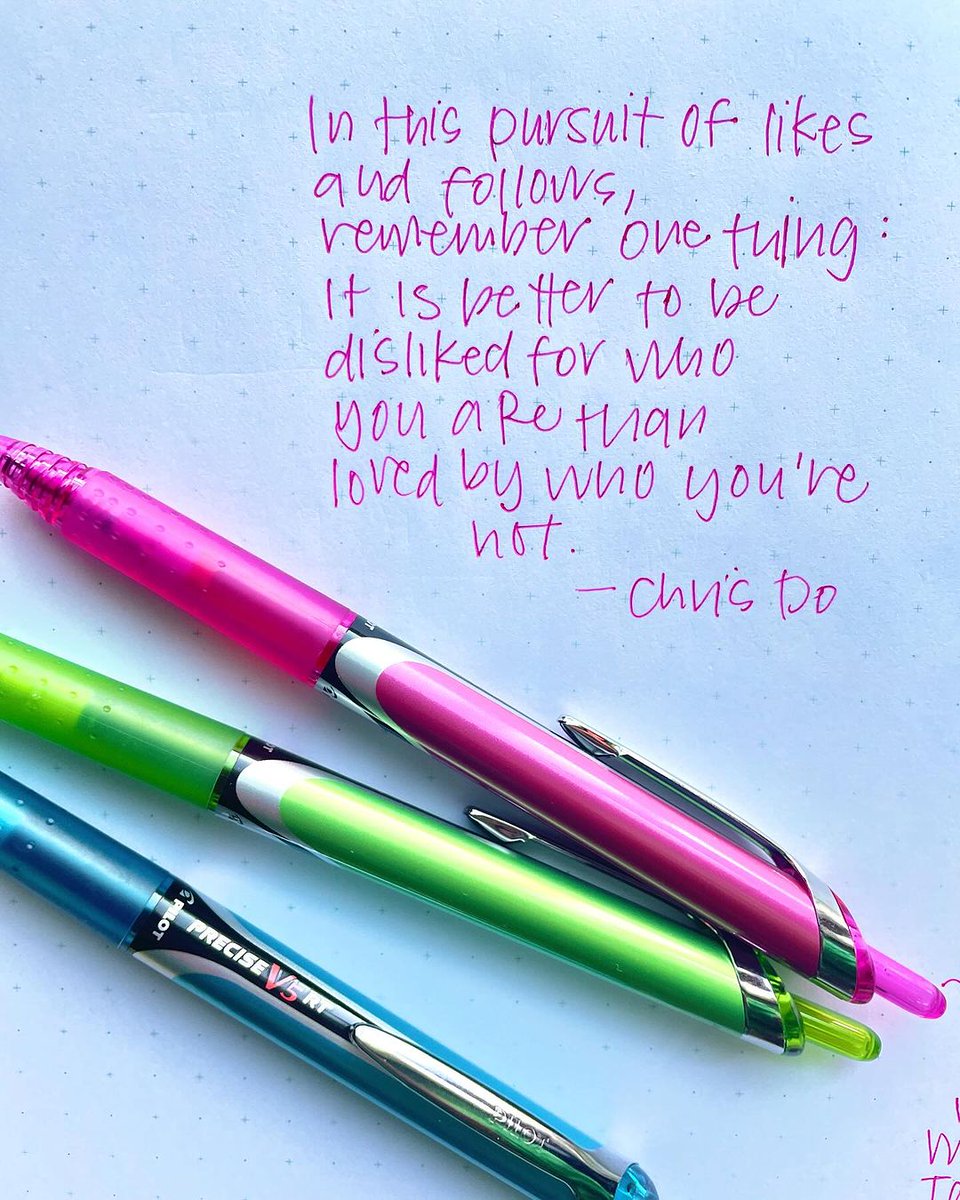 In this pursuit of likes
and follows,
remember one thing:
It is better to be
disliked for who
you are than
loved by who you're
not.
— Chris Do
PILOT
PRECISE V5 RT
PILOT